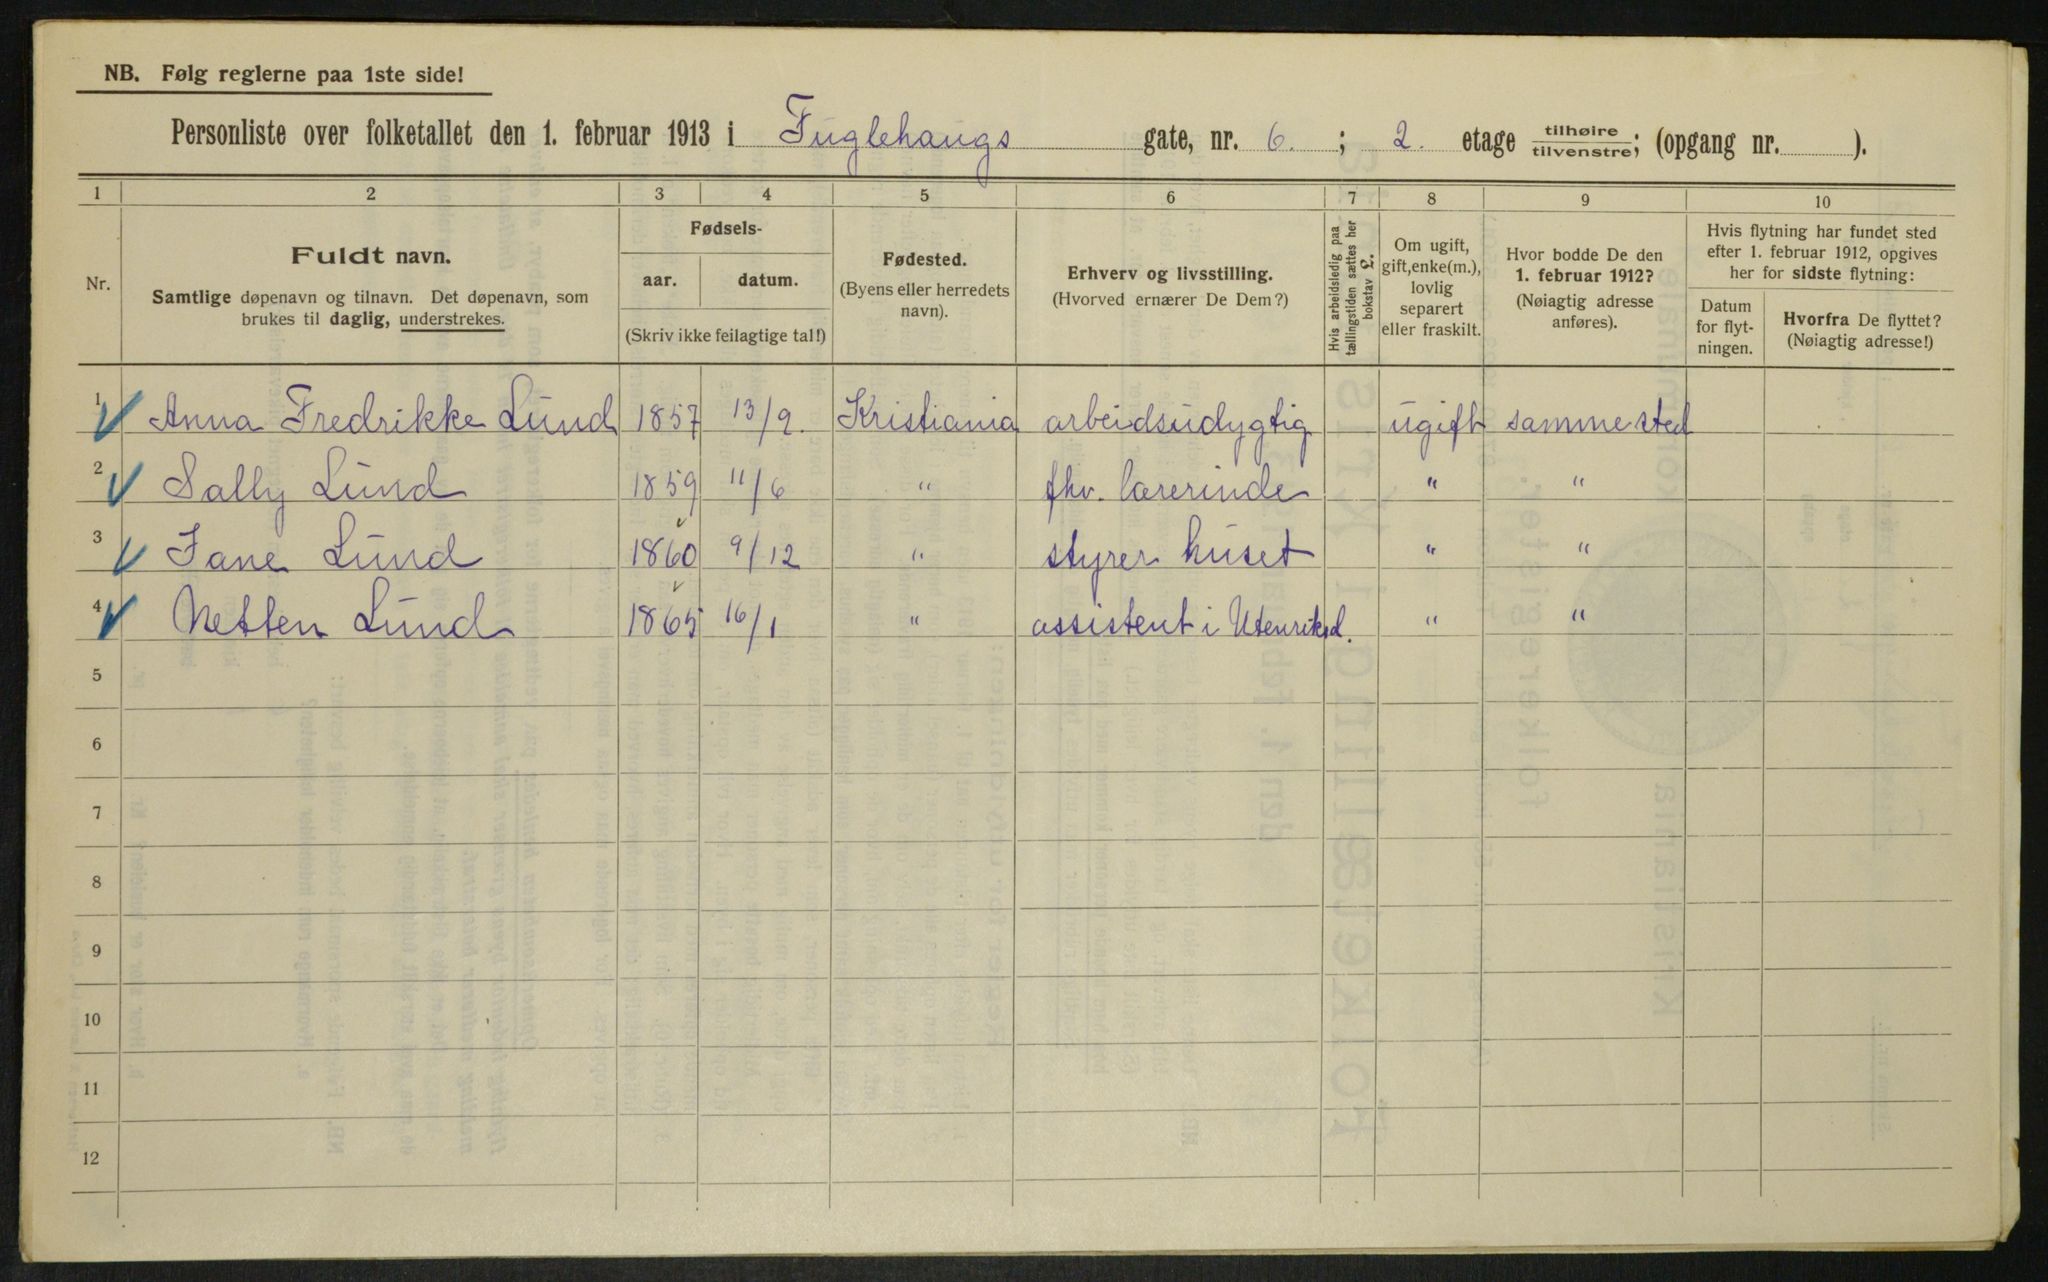 NB. Følg reglerne paa 1ste side!
Personliste over folketallet den 1. februar 1913 i Fuglehaugs gate, nr. 6. ; 2. etage tilhøire/tilvenstre; (opgang nr. ).
1 2 3 4 5 6 7 8 9 10
Nr.
Fuldt navn.
Samtlige døpenavn og tilnavn. Det døpenavn, som
brukes til daglig, understrekes.
Fødsels-
aar. datum.
(Skriv ikke feilagtige tal!)
Fødested.
(Byens eller herredets
navn).
Erhverv og livsstilling.
(Hvorved ernærer De Dem?)
Hvis arbeidsledig paa
tællingstiden sættes her
bokstav L.
Om ugift,
gift, enke(m.),
lovlig
separert
eller fraskilt.
Hvor bodde De den
1. februar 1912?
(Nøiagtig adresse
anføres).
Hvis flytning har fundet sted
efter 1. februar 1912, opgives
her for sidste flytning:
Datum
for flyt-
ningen.
Hvorfra De flyttet?
(Nøiagtig adresse!)
1 Anna Fredrikke Lund 1857 13/9. Kristiania arbeidsudygtig ugift sammested
2 Sally Lund 1859 11/6 " fhv. lærerinde " "
3 Jane Lund 1860 9/12 " styrer huset " "
4 Netten Lund 1865 16/1 " assistent i Utenriksd. " "
5
6
7
8
9
10
11
12